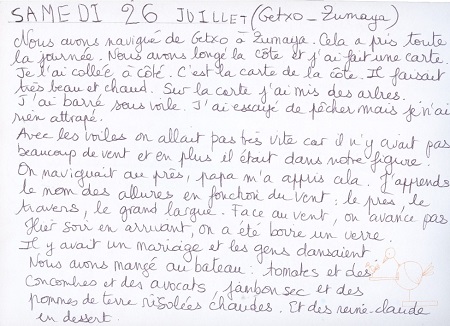 SAMEDI 26 JUILLET (Getxo - Zumaya)
Nous avons navigué de Getxo à Zumaya. Cela a pris toute
la journée. Nous avons longé la côte et j'ai fait une carte.
Je l'ai collée à côté. C'est la carte de la côte. Il faisait
très beau et chaud. Sur la carte j'ai mis des arbres.
J'ai barré sous voile. J'ai essayé de pêcher mais je n'ai
rien attrapé.
Avec les voiles on allait pas très vite car il n'y avait pas
beaucoup de vent et en plus il était dans notre figure.
On naviguait au près, papa m'a appris cela. J'apprends
le nom des allures en fonction du vent : le près, le
travers, le grand largue. Face au vent, on avance pas
Hier soir en arrivant, on a été boire un verre.
Il y avait un mariage et les gens dansaient
Nous avons mangé au bateau : tomates et des
concombres et des avocats, jambon sec et des
pommes de terre rissolées chaudes. Et des reine-claude
en dessert.